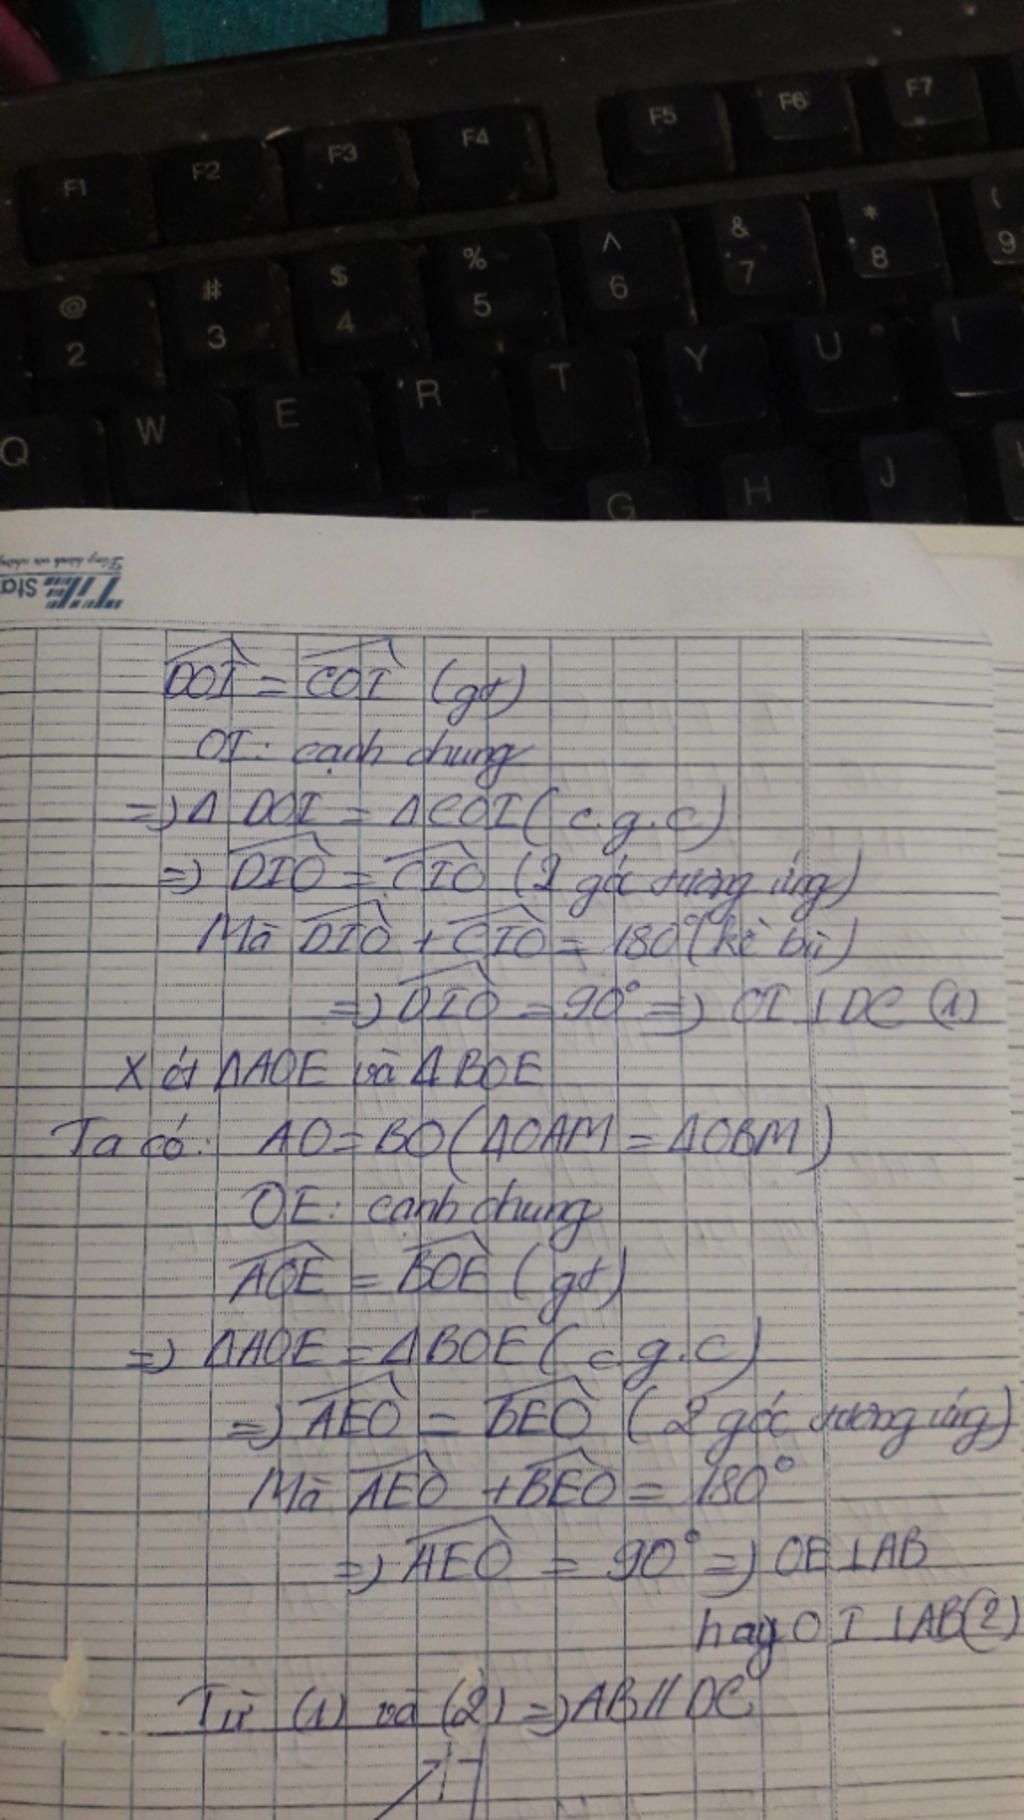 F1 F2 F3 F4 F5 F6 F7
@ # $ % ^ & * (
2 3 4 5 6 7 8 9
Q W E R T Y U I
G H J
TiTi Sta
DOI = COI (gt)
OI: cạnh chung
=) Δ DOI = ΔCOI (c.g.c)
=) DIO = CIO (2 góc tương ứng)
Mà DIO + CIO = 180° (kề bù)
=) DIO = 90° =) OI ⊥ DC (1)
Xét ΔAOE và ΔBOE
Ta có: AO = BO (ΔOAM = ΔOBM)
OE: cạnh chung
AOE = BOE (gt)
=) ΔAOE = ΔBOE (c.g.c)
=) AEO = BEO (2 góc tương ứng)
Mà AEO + BEO = 180°
=) AEO = 90° =) OE ⊥ AB
hay OI ⊥ AB (2)
Từ (1) và (2) =) AB // DC